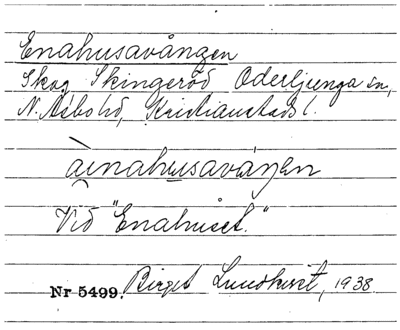 Enahusavången
Skog Skingeröd Oderljunga sn,
N. Åsbo hd, Kristianstads l.
àinahusaváŋen
Vid "Enahuset."
Nr 5499. Birgit Lundkvist, 1938